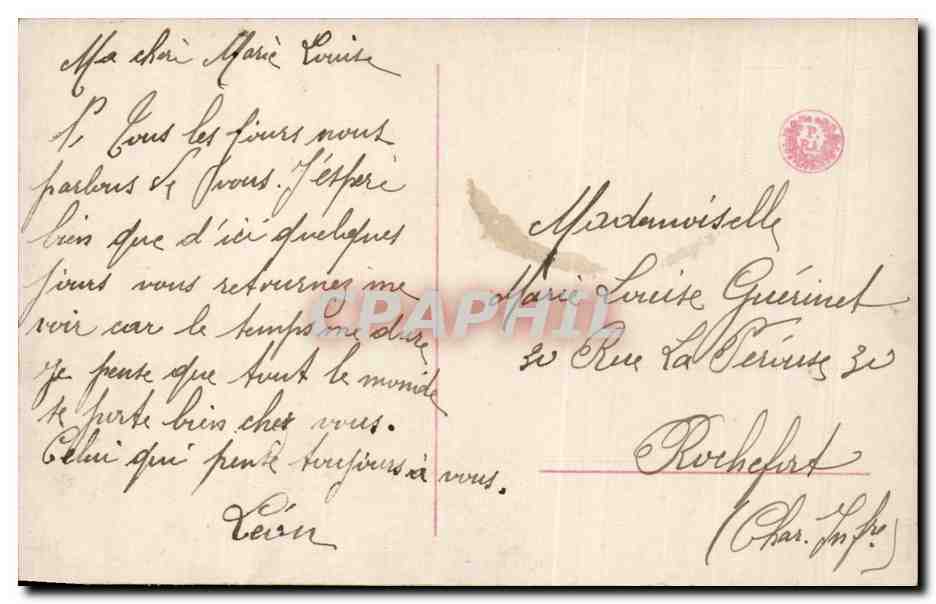 Ma chèri Mariè Louise
Tous les jours nous
parlons de vous. J'éspère
bien que d'ici quelques
jours vous retournez me
voir car le temps me dure
je pense que tout le monde
se porte bien chez vous.
Celui qui pense toujours à vous.
Léon
P.
R.I.
Mademoiselle
Marie Louise Guérinet
30 Rue La Pérouse 30
Rochefort
(Char. Infre)
CPAPHIL